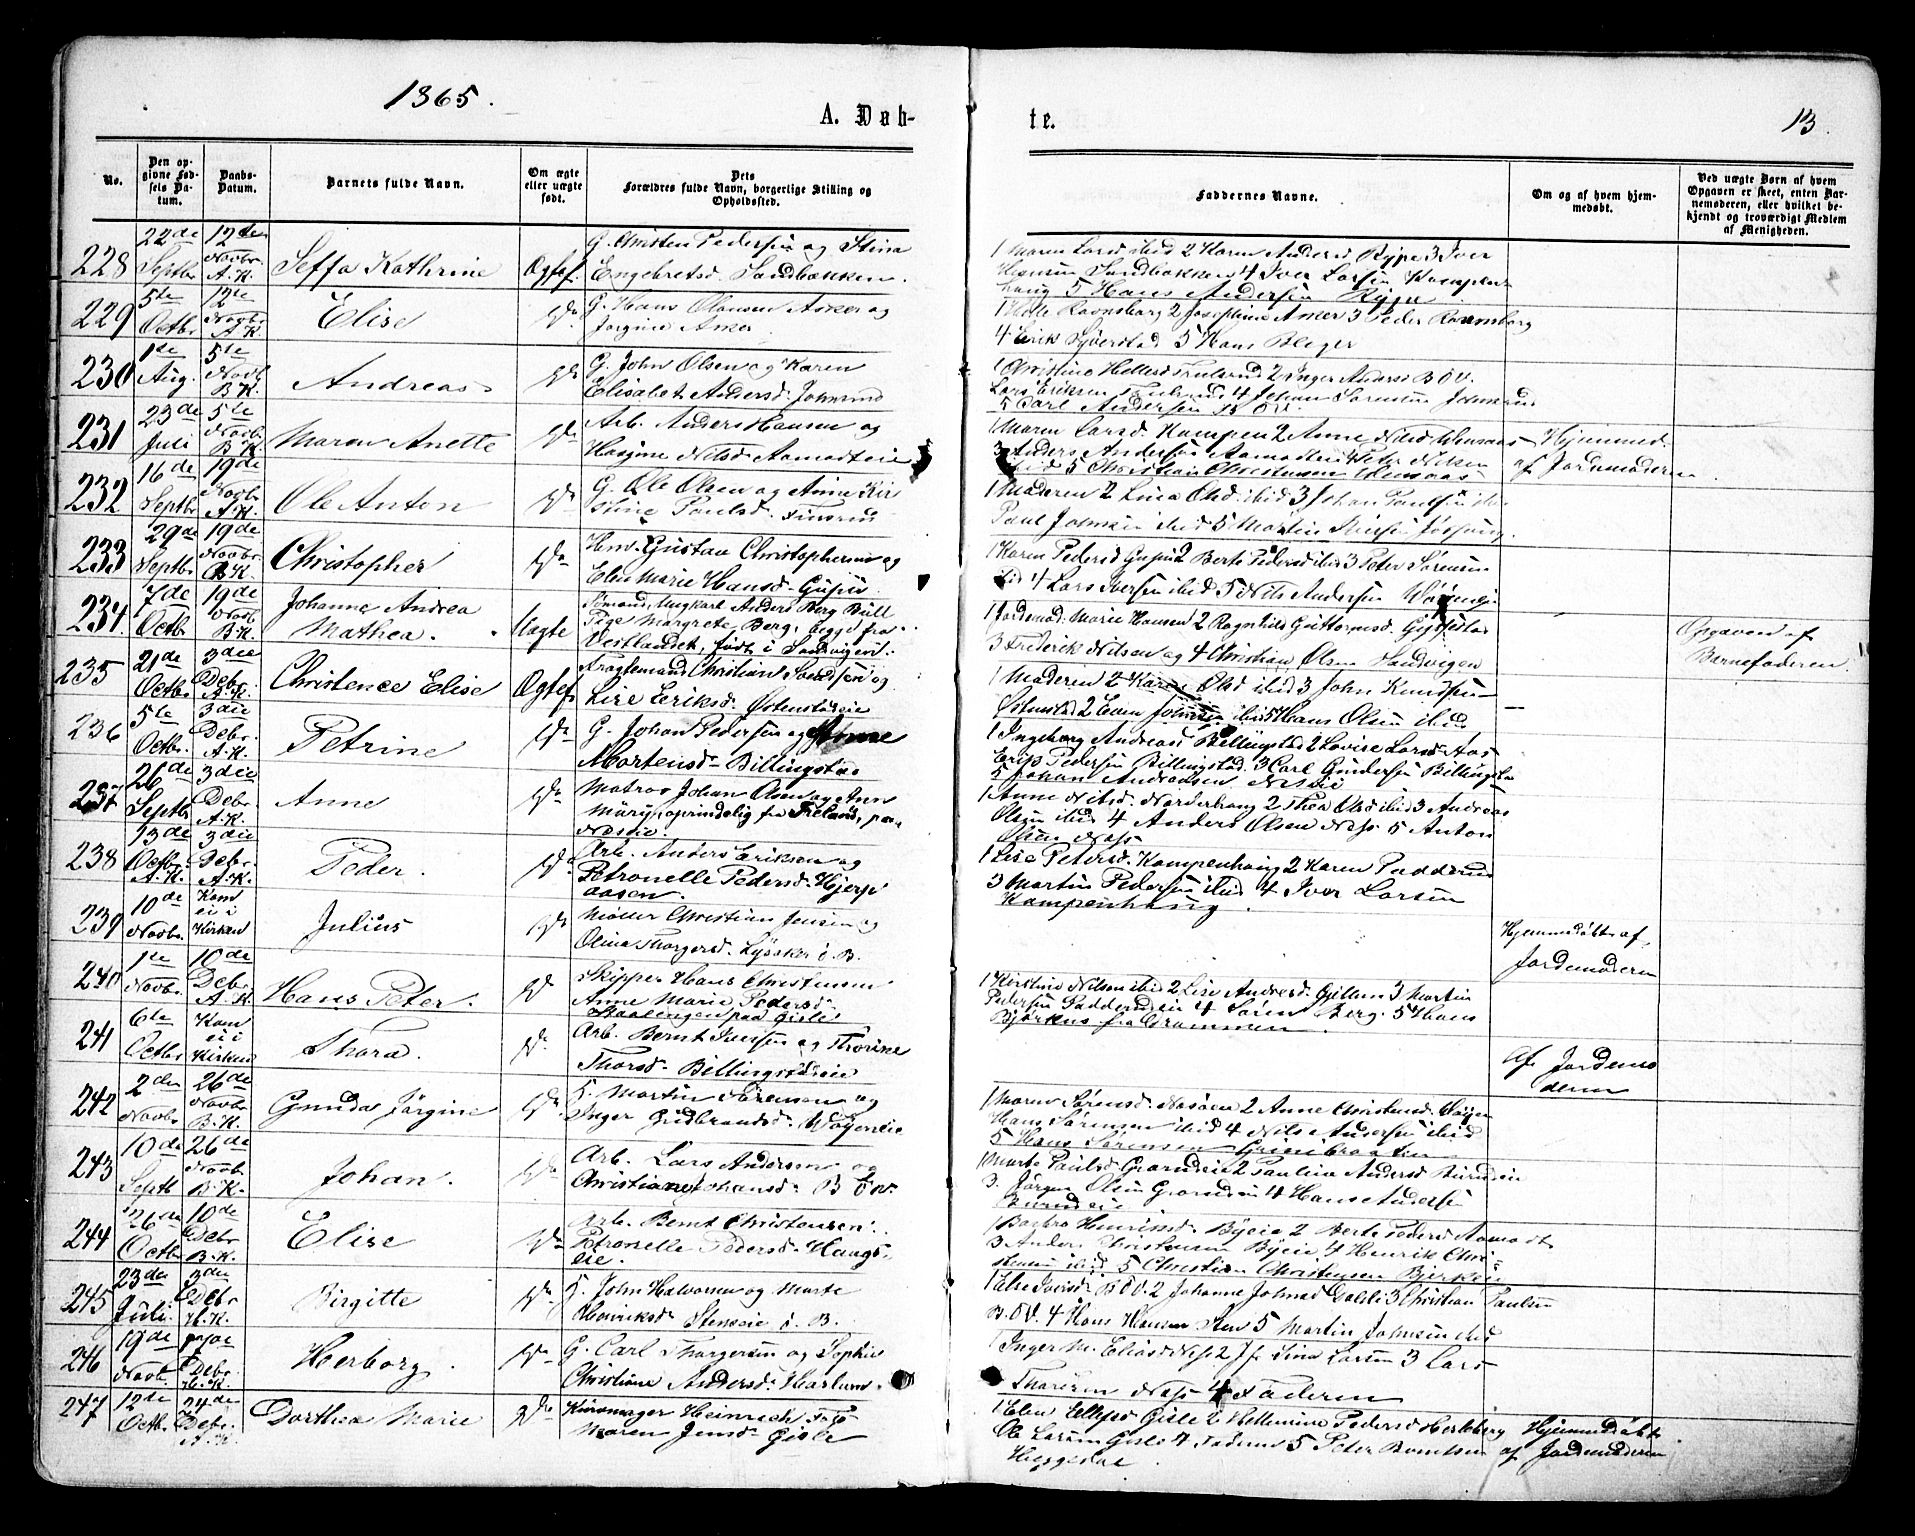 1865.
A. Døb-
te.
13.
No.
Den op-
givne Fød-
sels Da-
tum.
Daabs-
Datum.
Barnets fulde Navn.
Om ægte
eller uægte
født.
Dets
Forældres fulde Navn, borgerlige Stilling og
Opholdssted.
Faddernes Navne.
Om og af hvem hjem-
medøbt.
Ved uægte Børn af hvem
Opgaven er skeet, enten Bar-
nemoderen, eller hvilket be-
kjendt og troværdigt Medlem
af Menigheden.
228 22de Septbr 12te Novbr. A.K. Seffa Kathrine Ægtef.
G. Christen Pedersen og Stina
Engebretsd. Sandbakken.
1 Maren Larsd ibid 2 Karen Andersd Rype 3 Iver
Hansen Sandbakken 4 Iver Larsen Kampen-
haug 5 Hans Andersen Rype
229 5te Octbr 12te Novbr A.K. Elise Do
G. Hans Olausen Asker og
Jørgine Asker
1 Helle Ravnsborg 2 Josephine Asker 3 Peder Ravnsborg
4 Erik Syverstad 5 Hans Bleger
230 1ste Aug. 5te Novb. B.K. Andreas Do
G. John Olsen og Karen
Elisabet Andersd. Johnsrud
1 Christine Hellesd 2 Inger Andersd B O V.
Lars Eriksen 4 Johan Sørensen Johnsrud
5 Carl Andersen B OV.
231 23de Juli 5te Novb. B.K. Maren Anette Do
Arb. Anders Hansen og
Nilsd Aamodteie
1 Maren Larsd. Kampen 2 Anne Nilsd
3 Anders Andersen Aamodteie 4 Peter Nilsen
ibid 5 Christian Christensen
Hjemmed.
af Jordemoderen
232 16de Septbr 19de Novbr. A.K. Ole Anton Do
G. Ole Olsen og Anne Kir-
stine Paulsd.
1 Moderen 2 Lina Olsd. ibid 3 Johan Paulsen ibid
Paul Johnsen ibid 5 Martin
233 29de Septbr. 19de Novbr. B.K. Christopher Do
Hmd. Gustav Christophersen og
Elen Marie Hansd. Gupu
1 Karen Pedersd Gupu 2 Berte Pedersd ibid 3 Peter Sørensen
ibid 4 Lars Iversen ibid 5 Nils Andersen
234. 7de Octbr. 19de Novb B.K. Johanne Andrea
Mathea. Uægte
Sømand, Ungkarl Anders Berg Bull
Pige Margrete Berg, begge fra
Vestlandet, født i Sandvigen.
1 Jordemod. Marie Hansen 2 Ragnhild Guttormsd. Gjessestad
3 Frederik Nilsen og 4 Christian Olsen Sandvigen
Opgaven af
Barnefaderen.
235 21de Octbr. 3die Debr. A.K. Christence Elise Ægtef
Christian Sandsen og
Lise Eriksd. Østenstadeie
1 Moderen 2 Karen Olsd ibid 3 John Knudsen
Østenstad 2 Even Johnsen ibid 5 Hans Olsen ibid
236 5te Octbr. 3die Debr. A.K. Petrine Do
G. Johan Pedersen og Anne
Mortensd. Billingstad
1 Ingeborg Andreasd Billingstad 2 Lovise Larsd Aas
Erik Pedersen Billingstad. 3 Karl Gundersen Billingstad
5 Johan Andreasen Neseie
237 26de Septbr. 3die Debr. A.K. Anne Do
Matros Johan Olsen og Ann
Mary, oprindelig fra Irland, paa
Neseie.
1 Anne Nilsd. Norderhaug 2 Thea Olsd ibid 3 Andreas
Olsen ibid 4 Anders Olsen Næs 5 Anton
Olsen Næs
238 13de Octbr. A.K. 3die Debr. A.K. Peder. Do
Arb. Anders Eriksen og
Petronelle Pedersd. Hjerp-
aasen.
1 Lise Petersd. Kampenhaug 2 Karen Padderud
3 Martin Pedersen ibid 4 Iver Larsen
Kampenhaug.
239 10de Novbr. Kom
ei i
Kirken Julius Do
Møller Christian Jensen og
Olina Thorgersd. Lysaker i B.
Hjemmedøbt af
Jordemoderen
240 1ste Novbr. 10de Debr. A.K. Hans Peter. Do
Skipper Hans Christensen
Anne Marie Pedersd.
paa Gisle
1 Kirstine Nilsen ibid 2 Lise Andersd. Gjellum 3 Martin
Pedersen Padderudeie 4 Søren Berg. 5 Hans
Bjørknes fra Drammen.
241 6te Octbr Kom
ei i
Kirken Thora. Do
Arb. Bernt Iversen og Thorine
Thorsd. Billingstadeie
af Jordemo
deren
242 2den Novbr. 26de Novbr. B.K. Gunda Jørgine Do
H. Martin Sørensen og
Inger Gudbrandsd.
1 Maren Sørensd. Næsøen 2 Anne Christensd.
Hans Sørensen ibid 4 Nils Andersen ibid
5 Hans Sørensen
243 10de Septb 26de Novb. B.K. Johan. Do
Arb. Lars Andersen og
Christiane Johansd. B Ov.
1 Marte Paulsd Grorudeie 2 Pauline Andersd Burudeie
3. Jørgen Olsen 4 Hans Andersen
Burudeie
244 26de Octbr. 10de Debr B.K. Elise Do
Arb. Bernt Christensen.
Petronelle Pedersd. Haugs-
eie.
1 Barbra Henriksd. Byeie 2 Berte Pedersd Aamodt
3 Anders Christensen Byeie 4 Henrik Chri-
stensen ibid 5 Christian Christensen Bjerkeie
245 23de Juli. 3die Debr H.K. Birgitte Do
H. John Halvorsen og Marte
Henriksd. Steneie i B.
1 Else Iversd. B OV. 2 Johanne Johnsd 3 Christian Paulsen
B. OV. 4 Hans Hansen Sten 5 Martin Johnsen ibid
246 19de Novb. Debr. H.K. Herborg. Do
G. Carl Thorgersen og Sophie
Christiane Andersd. Harlum.
1 Inger M. Eliasd Næs 2 Jfr Sina Larsen 3 Lars
Thoresen Næs 4 Faderen
247 12de Octbr. 24de Debr. A.K. Dorthea Marie Do
Heinrich
Maren Jensd. Gisle
1 Elen Ellefsd Gisle 2 Hellemine Pedersd Herleberg
Ole Larsen Gisle 4 Faderen 5 Peter Berntsen
Heggedal.
Hjemmedøbt
af Jordemoderen